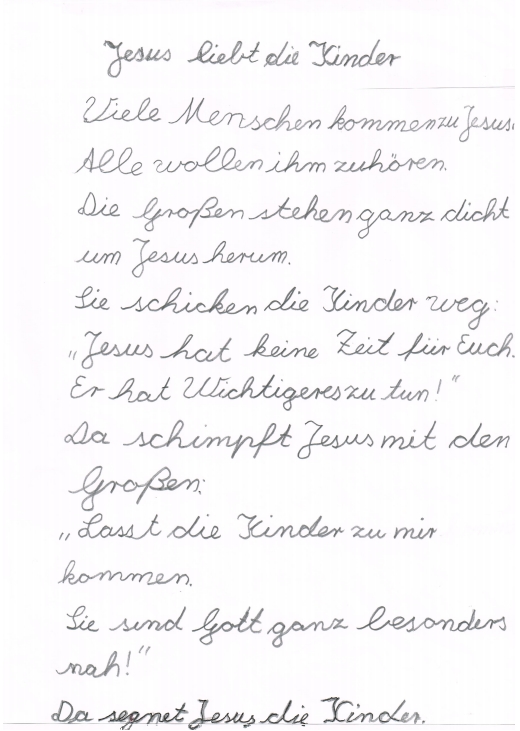 Jesus liebt die Kinder
Viele Menschen kommen zu Jesus.
Alle wollen ihm zuhören.
Die Großen stehen ganz dicht
um Jesus herum.
Sie schicken die Kinder weg:
„Jesus hat keine Zeit für Euch.
Er hat Wichtigeres zu tun!“
Da schimpft Jesus mit den
Großen:
„Lasst die Kinder zu mir
kommen.
Sie sind Gott ganz besonders
nah!“
Da segnet Jesus die Kinder.